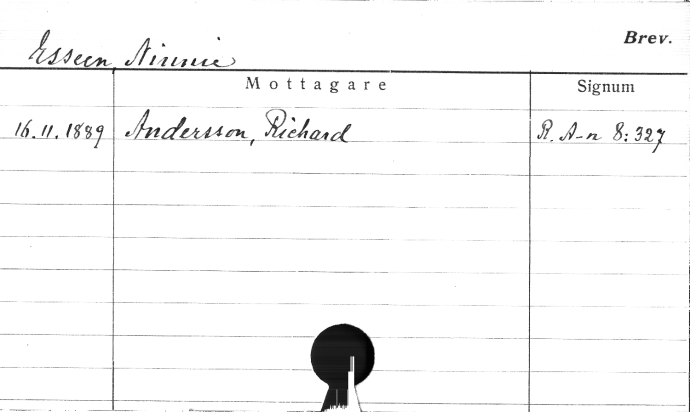 Brev.
Esseen, Ninnie
Mottagare Signum
16.11.1889 Andersson, Richard R. A-n 8:327